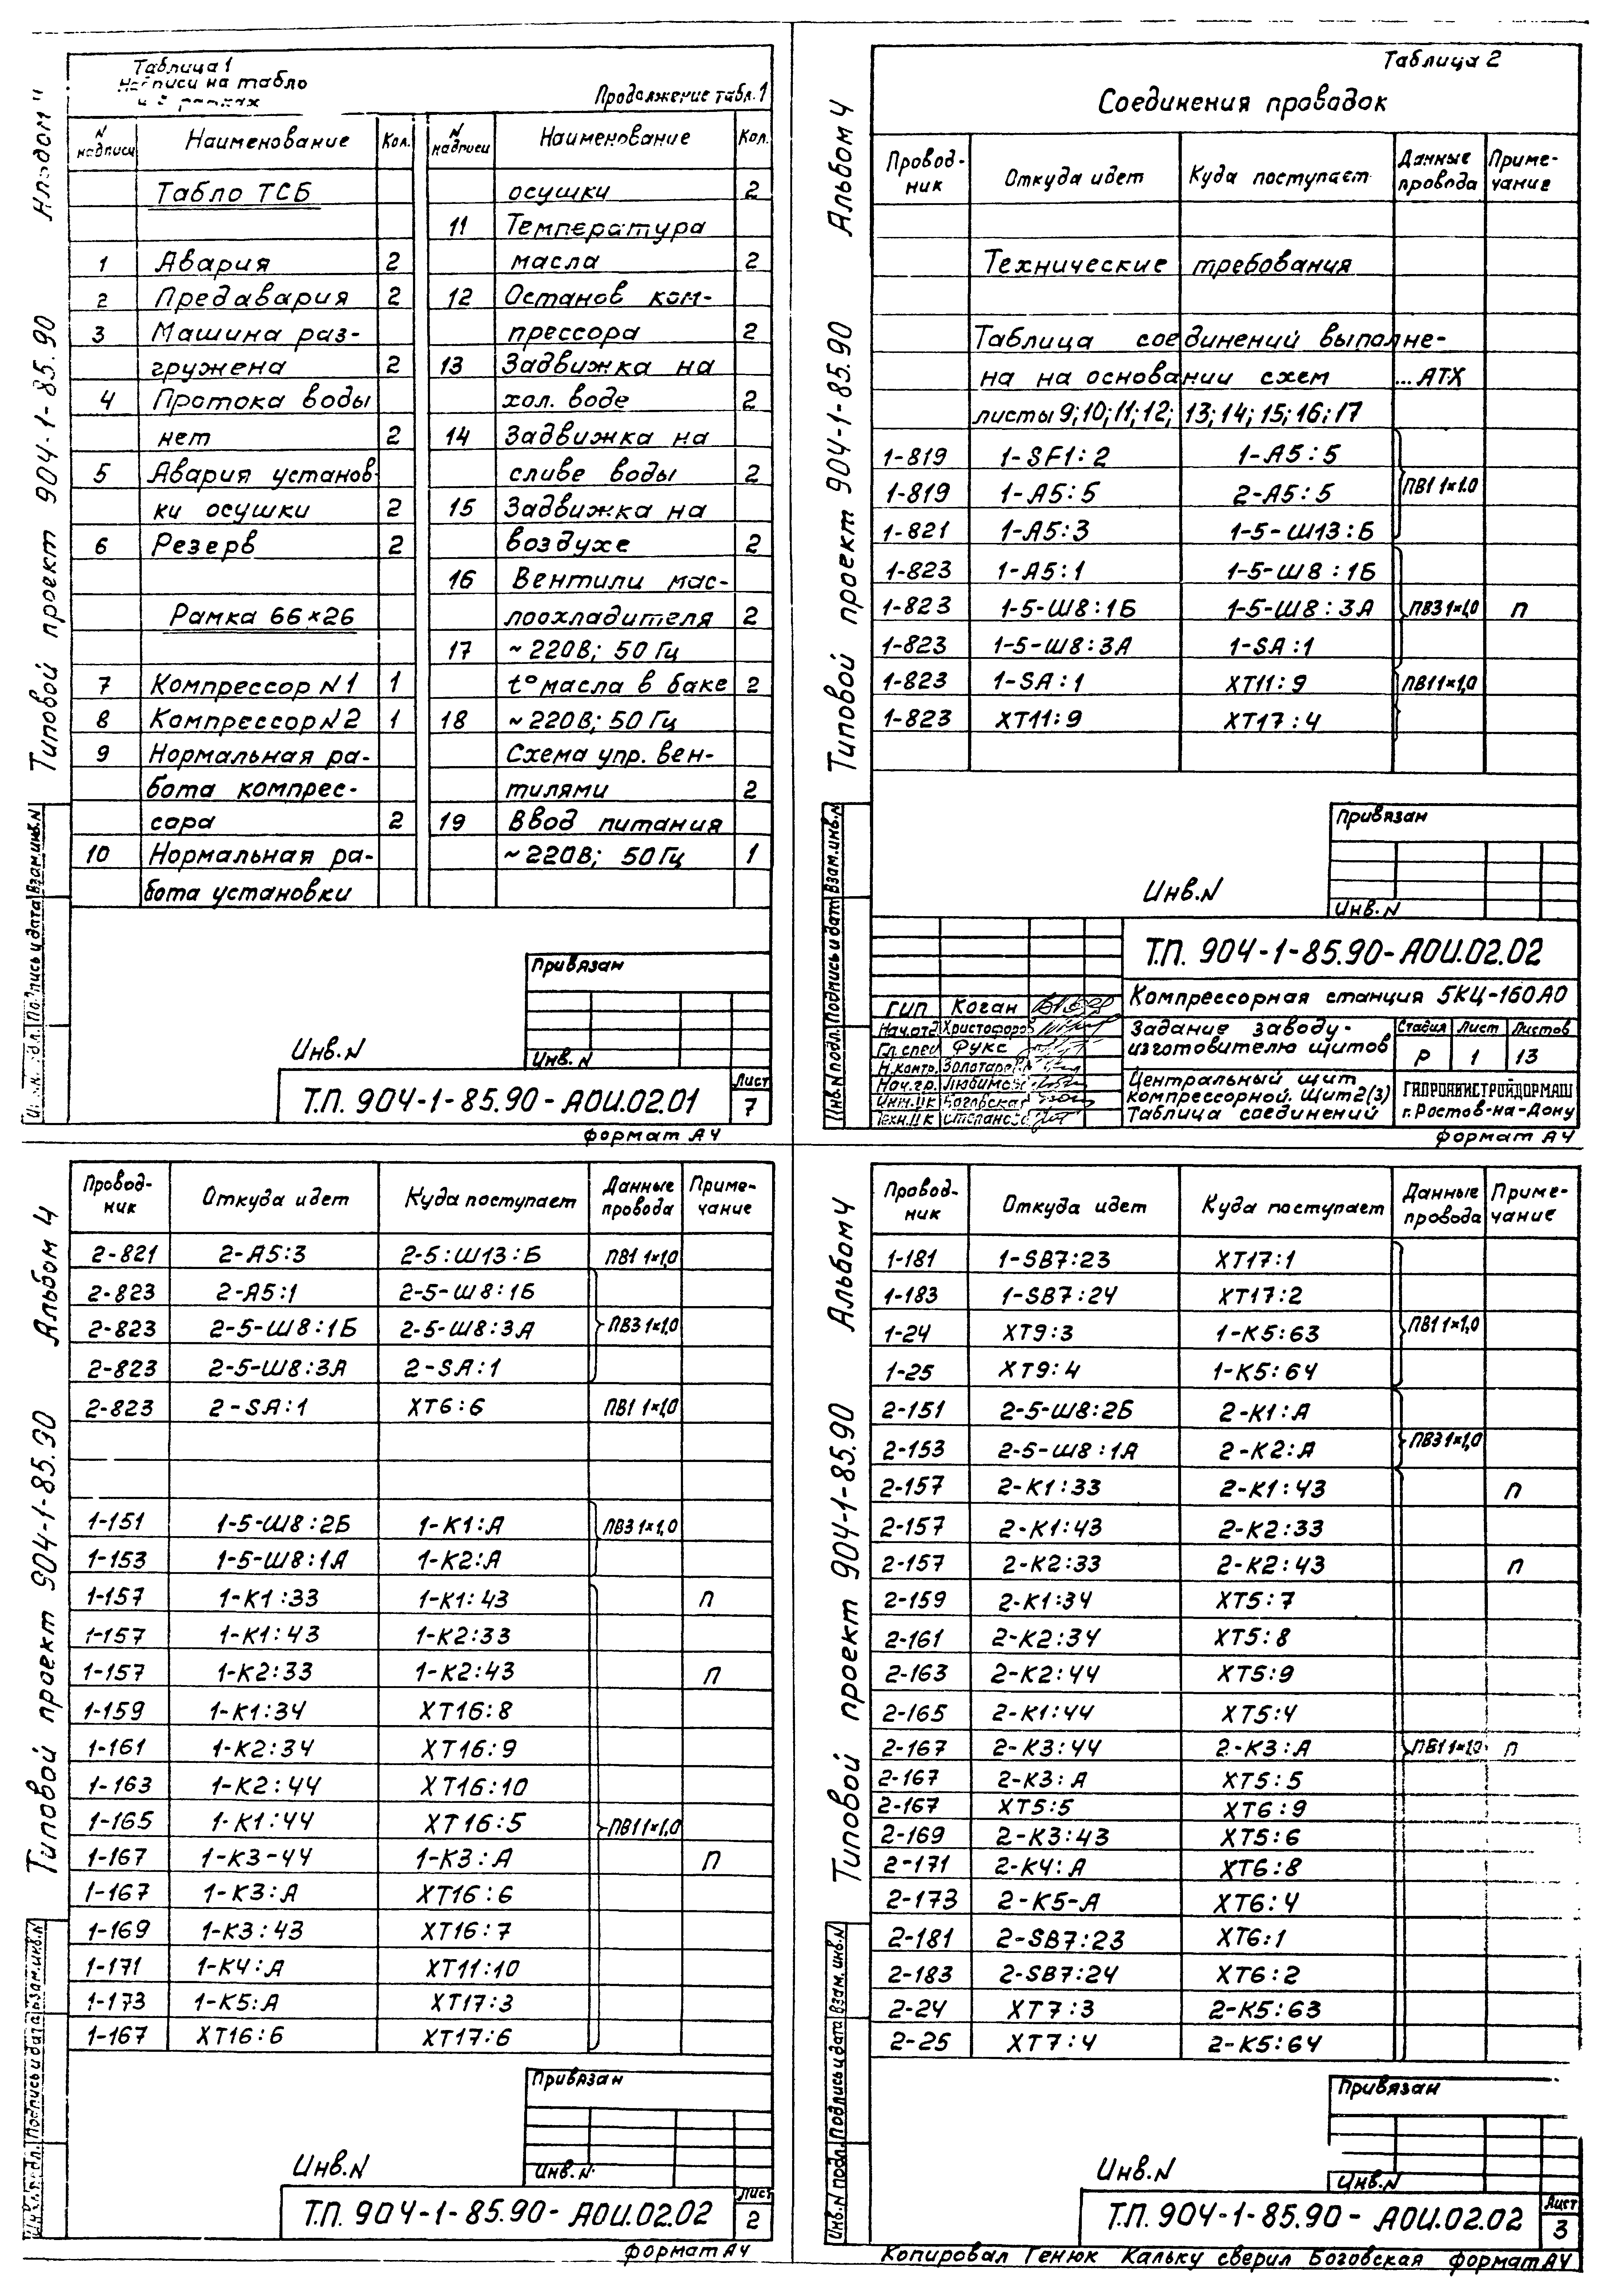 Таблица 1
Надписи на табло
Продолжение табл.1
N надписи Наименование Кол.
Табло ТСБ
1 Авария 2
2 Предавария 2
3 Машина раз-
гружена 2
4 Протока воды
нет 2
5 Авария установ-
ки осушки 2
6 Резерв 2
Рамка 66×26
7 Компрессор N1 1
8 Компрессор N2 1
9 Нормальная ра-
бота компрес-
сора 2
10 Нормальная ра-
бота установки
N надписи Наименование Кол.
осушки 2
11 Температура
масла 2
12 Останов ком-
прессора 2
13 Задвижка на
хол. воде 2
14 Задвижка на
сливе воды 2
15 Задвижка на
воздухе 2
16 Вентили мас-
лоохладителя 2
17 ~220В; 50Гц
t° масла в баке 2
18 ~220В; 50Гц
Схема упр. вен-
тилями 2
19 Ввод питания
~220В; 50Гц 1
Типовой проект 904-1-85.90 Альбом
Подпись и дата Взам.инв.N
Привязан
Инв.N
Инв.N
Т.П. 904-1-85.90-АОИ.02.01
Лист
7
формат А4
Таблица 2
Соединения проводок
Провод-
ник Откуда идет Куда поступает Данные
провода Приме-
чание
Технические требования
Таблица соединений выполне-
на на основании схем ...АТХ
листы 9;10;11;12; 13;14;15;16;17
1-819 1-SF1:2 1-А5:5
1-819 1-А5:5 2-А5:5 ПВ1 1×1.0
1-821 1-А5:3 1-5-Ш13:Б
1-823 1-А5:1 1-5-Ш8:1Б
1-823 1-5-Ш8:1Б 1-5-Ш8:3А ПВ3 1×1,0 П
1-823 1-5-Ш8:3А 1-SА:1
1-823 1-SА:1 ХТ11:9 ПВ1 1×1,0
1-823 ХТ11:9 ХТ17:4
Типовой проект 904-1-85.90 Альбом 4
Инв.N подл. Подпись и дата Взам.инв.N
Привязан
Инв.N
Инв.N
Т.П. 904-1-85.90-АОИ.02.02
Компрессорная станция 5КЦ-160АО
ГИП Коган
Нач.отд Христофоров
Гл.спец Фукс
Н.контр. Золотарев
Нач.гр. Любимов
Задание заводу-
изготовителю щитов
Стадия Лист Листов
Р 1 13
Центральный щит
компрессорной. Щит2(3)
Таблица соединений
ГИПРОНИИСТРОЙДОРМАШ
г.Ростов-на-Дону
формат А4
Провод-
ник Откуда идет Куда поступает Данные
провода Приме-
чание
2-821 2-А5:3 2-5:Ш13:Б ПВ1 1×1,0
2-823 2-А5:1 2-5-Ш8:1Б
2-823 2-5-Ш8:1Б 2-5-Ш8:3А ПВ3 1×1,0
2-823 2-5-Ш8:3А 2-SА:1
2-823 2-SА:1 ХТ6:6 ПВ1 1×1,0
1-151 1-5-Ш8:2Б 1-К1:А ПВ3 1×1,0
1-153 1-5-Ш8:1А 1-К2:А
1-157 1-К1:33 1-К1:43 П
1-157 1-К1:43 1-К2:33
1-157 1-К2:33 1-К2:43 П
1-159 1-К1:34 ХТ16:8
1-161 1-К2:34 ХТ16:9
1-163 1-К2:44 ХТ16:10
1-165 1-К1:44 ХТ16:5 ПВ1 1×1,0
1-167 1-К3-44 1-К3:А П
1-167 1-К3:А ХТ16:6
1-169 1-К3:43 ХТ16:7
1-171 1-К4:А ХТ11:10
1-173 1-К5:А ХТ17:3
1-167 ХТ16:6 ХТ17:6
Типовой проект 904-1-85.90 Альбом 4
Подпись и дата Взам.инв.N
Привязан
Инв.N
Инв.N
Т.П. 904-1-85.90-АОИ.02.02
Лист
2
формат А4
Провод-
ник Откуда идет Куда поступает Данные
провода Приме-
чание
1-181 1-SВ7:23 ХТ17:1
1-183 1-SВ7:24 ХТ17:2
1-24 ХТ9:3 1-К5:63 ПВ1 1×1,0
1-25 ХТ9:4 1-К5:64
2-151 2-5-Ш8:2Б 2-К1:А
2-153 2-5-Ш8:1А 2-К2:А ПВ3 1×1,0
2-157 2-К1:33 2-К1:43 П
2-157 2-К1:43 2-К2:33
2-157 2-К2:33 2-К2:43 П
2-159 2-К1:34 ХТ5:7
2-161 2-К2:34 ХТ5:8
2-163 2-К2:44 ХТ5:9
2-165 2-К1:44 ХТ5:4
2-167 2-К3:44 2-К3:А ПВ1 1×1,0 П
2-167 2-К3:А ХТ5:5
2-167 ХТ5:5 ХТ6:9
2-169 2-К3:43 ХТ5:6
2-171 2-К4:А ХТ6:8
2-173 2-К5-А ХТ6:4
2-181 2-SВ7:23 ХТ6:1
2-183 2-SВ7:24 ХТ6:2
2-24 ХТ7:3 2-К5:63
2-25 ХТ7:4 2-К5:64
Типовой проект 904-1-85.90 Альбом 4
Инв.N подл. Подпись и дата Взам.инв.N
Привязан
Инв.N
Инв.N
Т.П. 904-1-85.90-АОИ.02.02
Лист
3
Копировал Генюк Кальку сверил Боговская формат А4